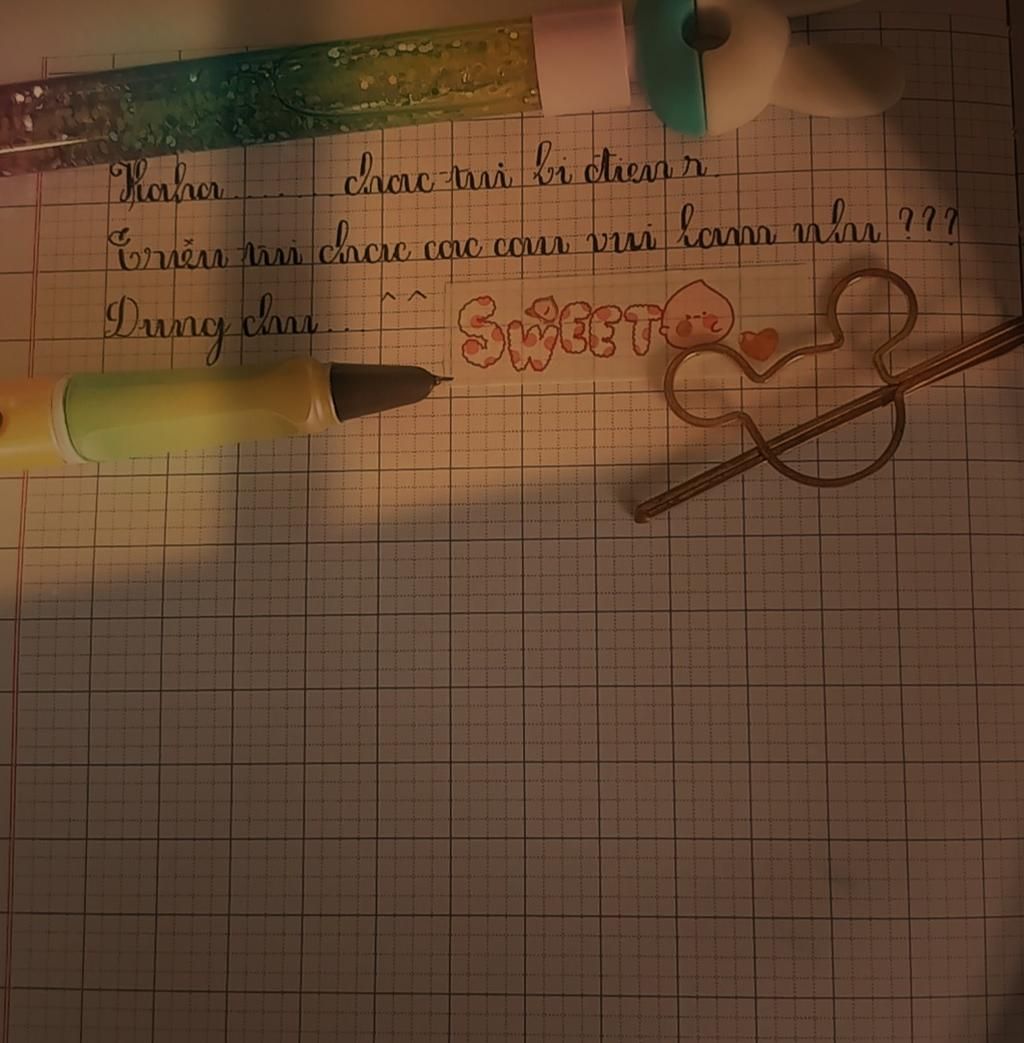 Haha........ chac tui bi dien r
Triển tui chac cac cau vui lam nhu ???
Dung chu... ^^
SWEET